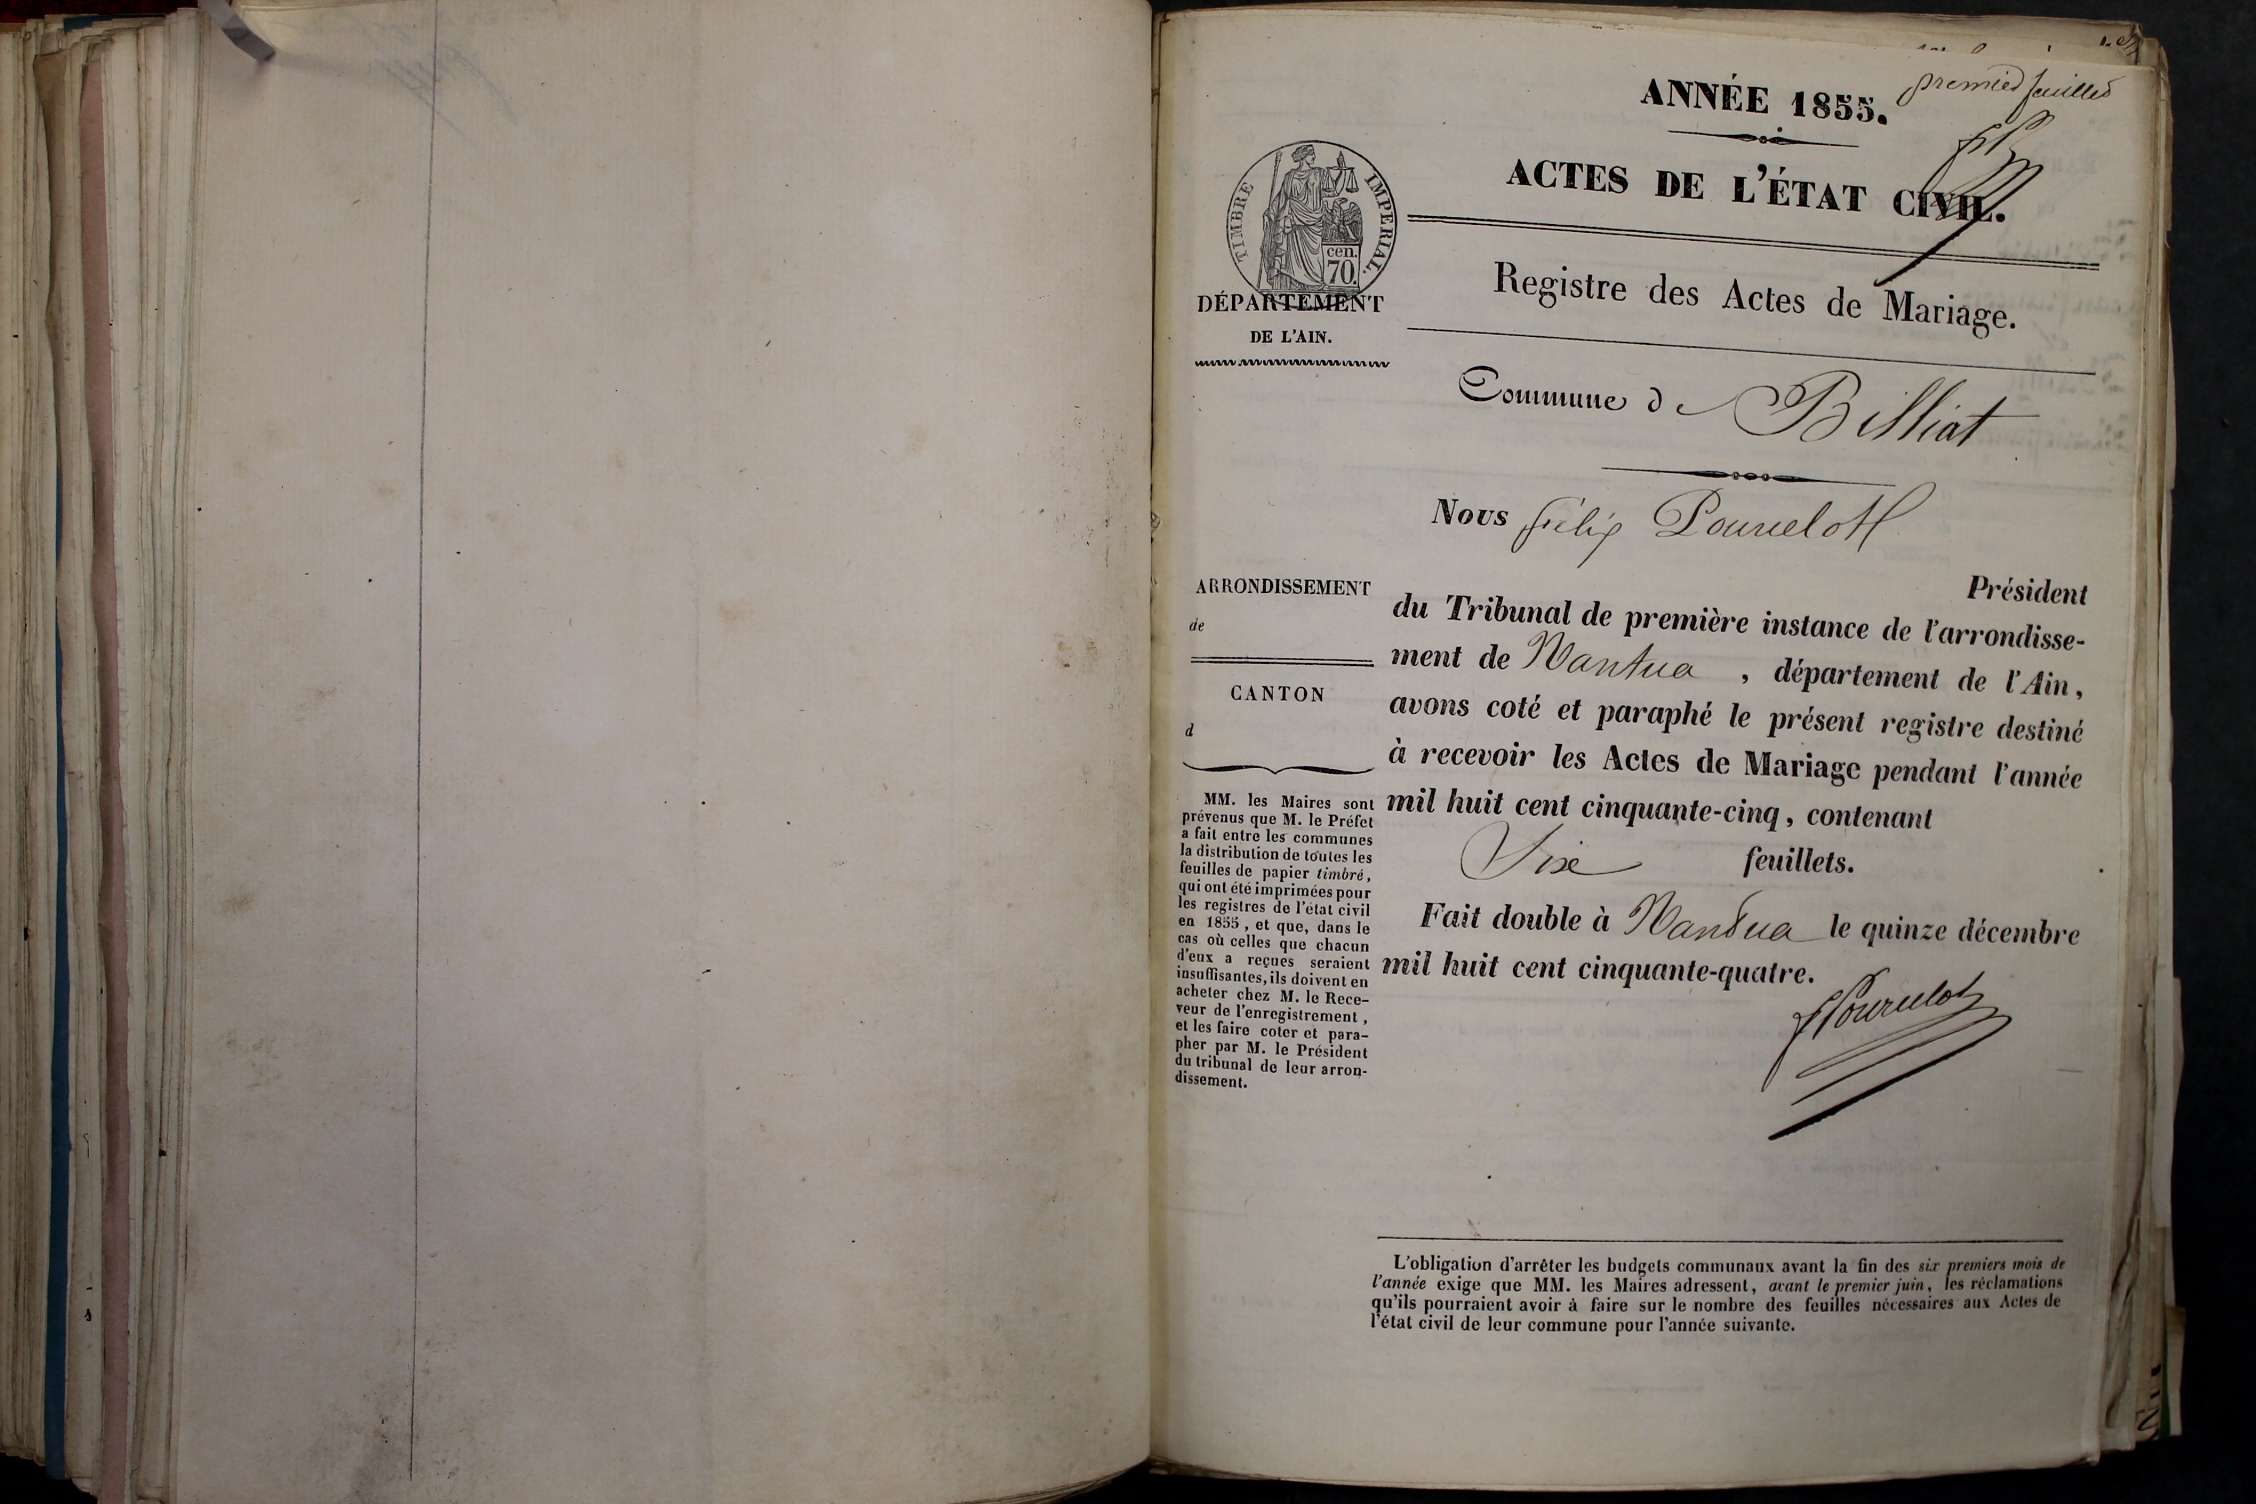 premier feuillet
ANNÉE 1855.
ACTES DE L'ÉTAT CIVIL.
TIMBRE IMPERIAL.
cen.
70.
DÉPARTEMENT
DE L'AIN.
Registre des Actes de Mariage.
Commune de Billiat
Nous félix Pourcelot
Président
du Tribunal de première instance de l'arrondisse-
ment de Nantua, département de l'Ain,
avons coté et paraphé le présent registre destiné
à recevoir les Actes de Mariage pendant l'année
mil huit cent cinquante-cinq, contenant
Six feuillets.
Fait double à Nantua le quinze décembre
mil huit cent cinquante-quatre.
fPourcelot
ARRONDISSEMENT
de
CANTON
d
MM. les Maires sont
prévenus que M. le Préfet
a fait entre les communes
la distribution de toutes les
feuilles de papier timbré,
qui ont été imprimées pour
les registres de l'état civil
en 1855, et que, dans le
cas où celles que chacun
d'eux a reçues seraient
insuffisantes, ils doivent en
acheter chez M. le Rece-
veur de l'enregistrement,
et les faire coter et para-
pher par M. le Président
du tribunal de leur arron-
dissement.
L'obligation d'arrêter les budgets communaux avant la fin des six premiers mois de
l'année exige que MM. les Maires adressent, avant le premier juin, les réclamations
qu'ils pourraient avoir à faire sur le nombre des feuilles nécessaires aux Actes de
l'état civil de leur commune pour l'année suivante.